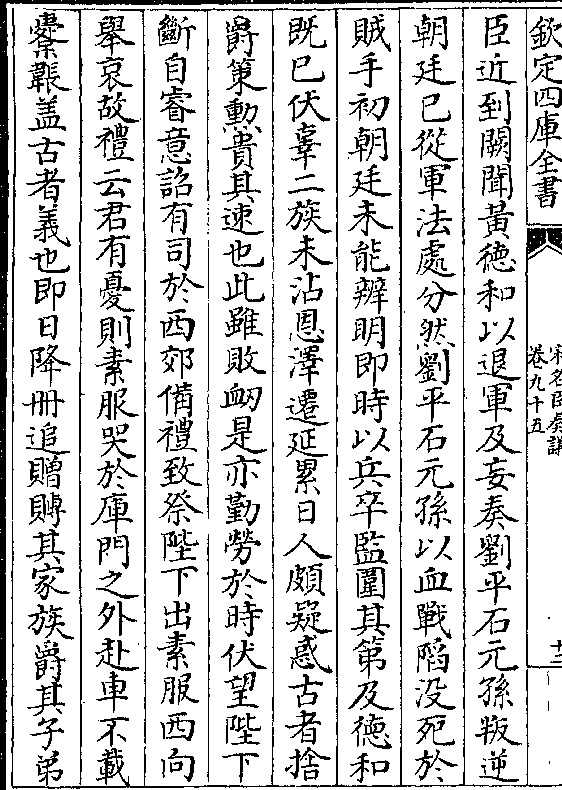 欽定四庫全書
宋名臣奏議
卷九十五
十二
臣近到闕聞黃德和以退軍及妄奏劉平石元孫叛逆
朝廷已從軍法處分然劉平石元孫以血戰䧟没死於
賊手初朝廷未能辨明即時以兵卒監圍其第及德和
既已伏辜二族未沾恩澤遷延累日人頗疑惑古者捨
爵策勲貴其速也此雖敗衂是亦勤勞於時伏望陛下
斷自睿意詔有司於西郊備禮致祭陛下出素服西向
舉哀故禮云君有憂則素服哭於庫門之外赴車不載
櫜韔盖古者義也即日降册追贈賻其家族爵其子弟